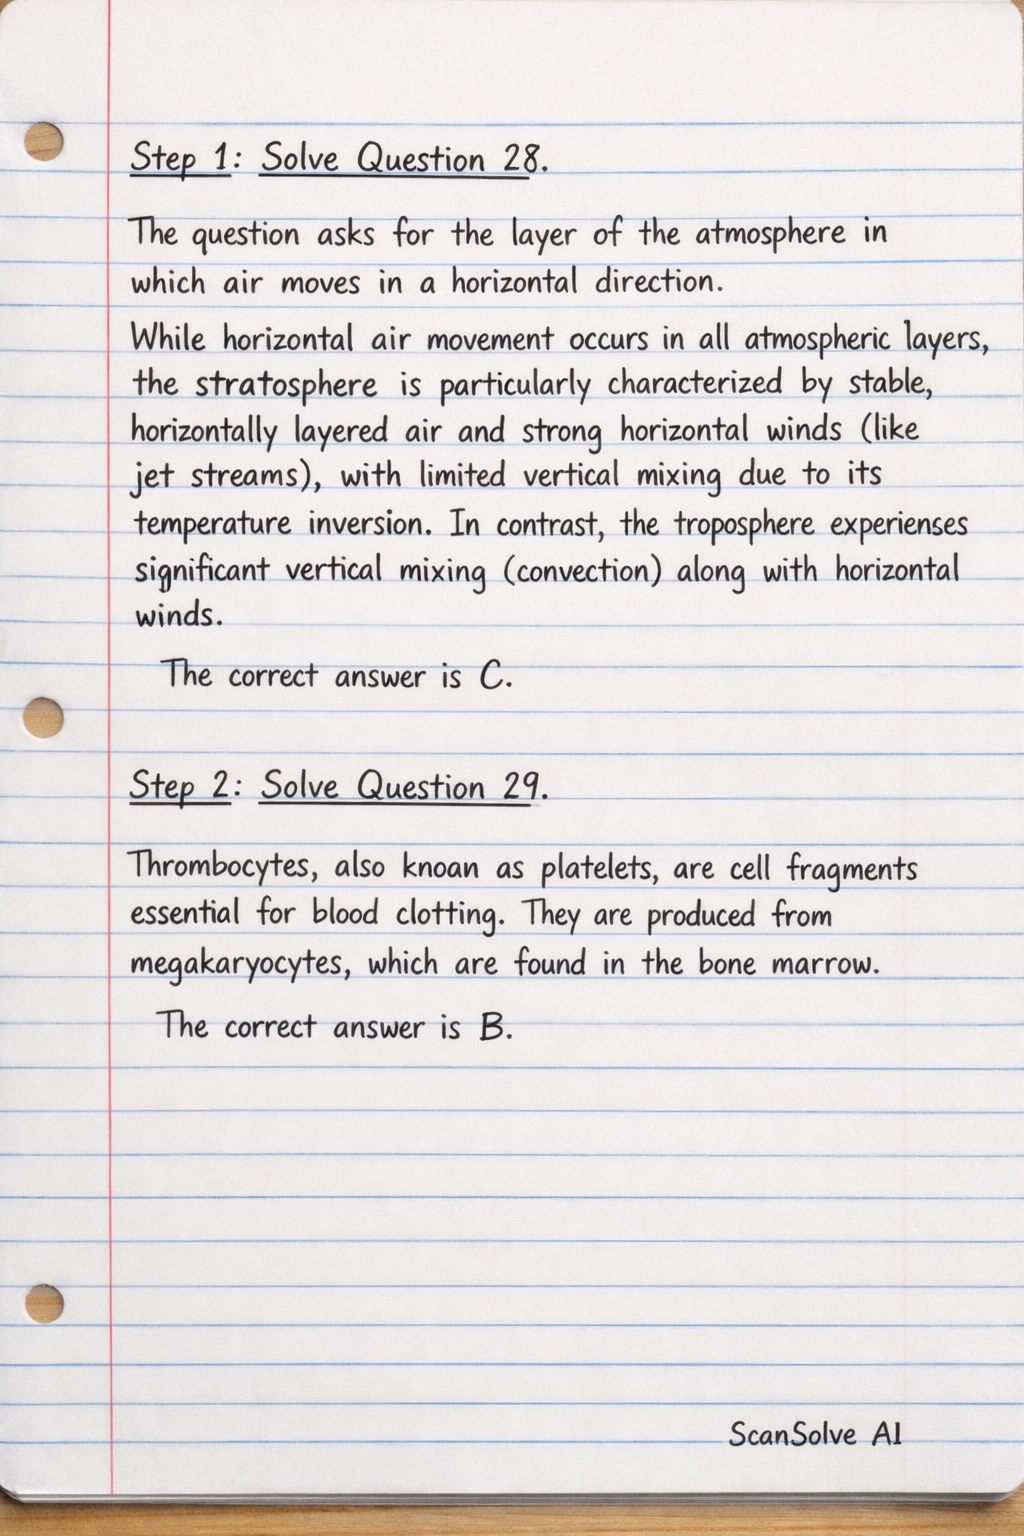 Step 1: Solve Question 28.
The question asks for the layer of the atmosphere in
which air moves in a horizontal direction.
While horizontal air movement occurs in all atmospheric layers,
the stratosphere is particularly characterized by stable,
horizontally layered air and strong horizontal winds (like
jet streams), with limited vertical mixing due to its
temperature inversion. In contrast, the troposphere experienses
significant vertical mixing (convection) along with horizontal
winds.
The correct answer is C.
Step 2: Solve Question 29.
Thrombocytes, also knoan as platelets, are cell fragments
essential for blood clotting. They are produced from
megakaryocytes, which are found in the bone marrow.
The correct answer is B.
ScanSolve AI